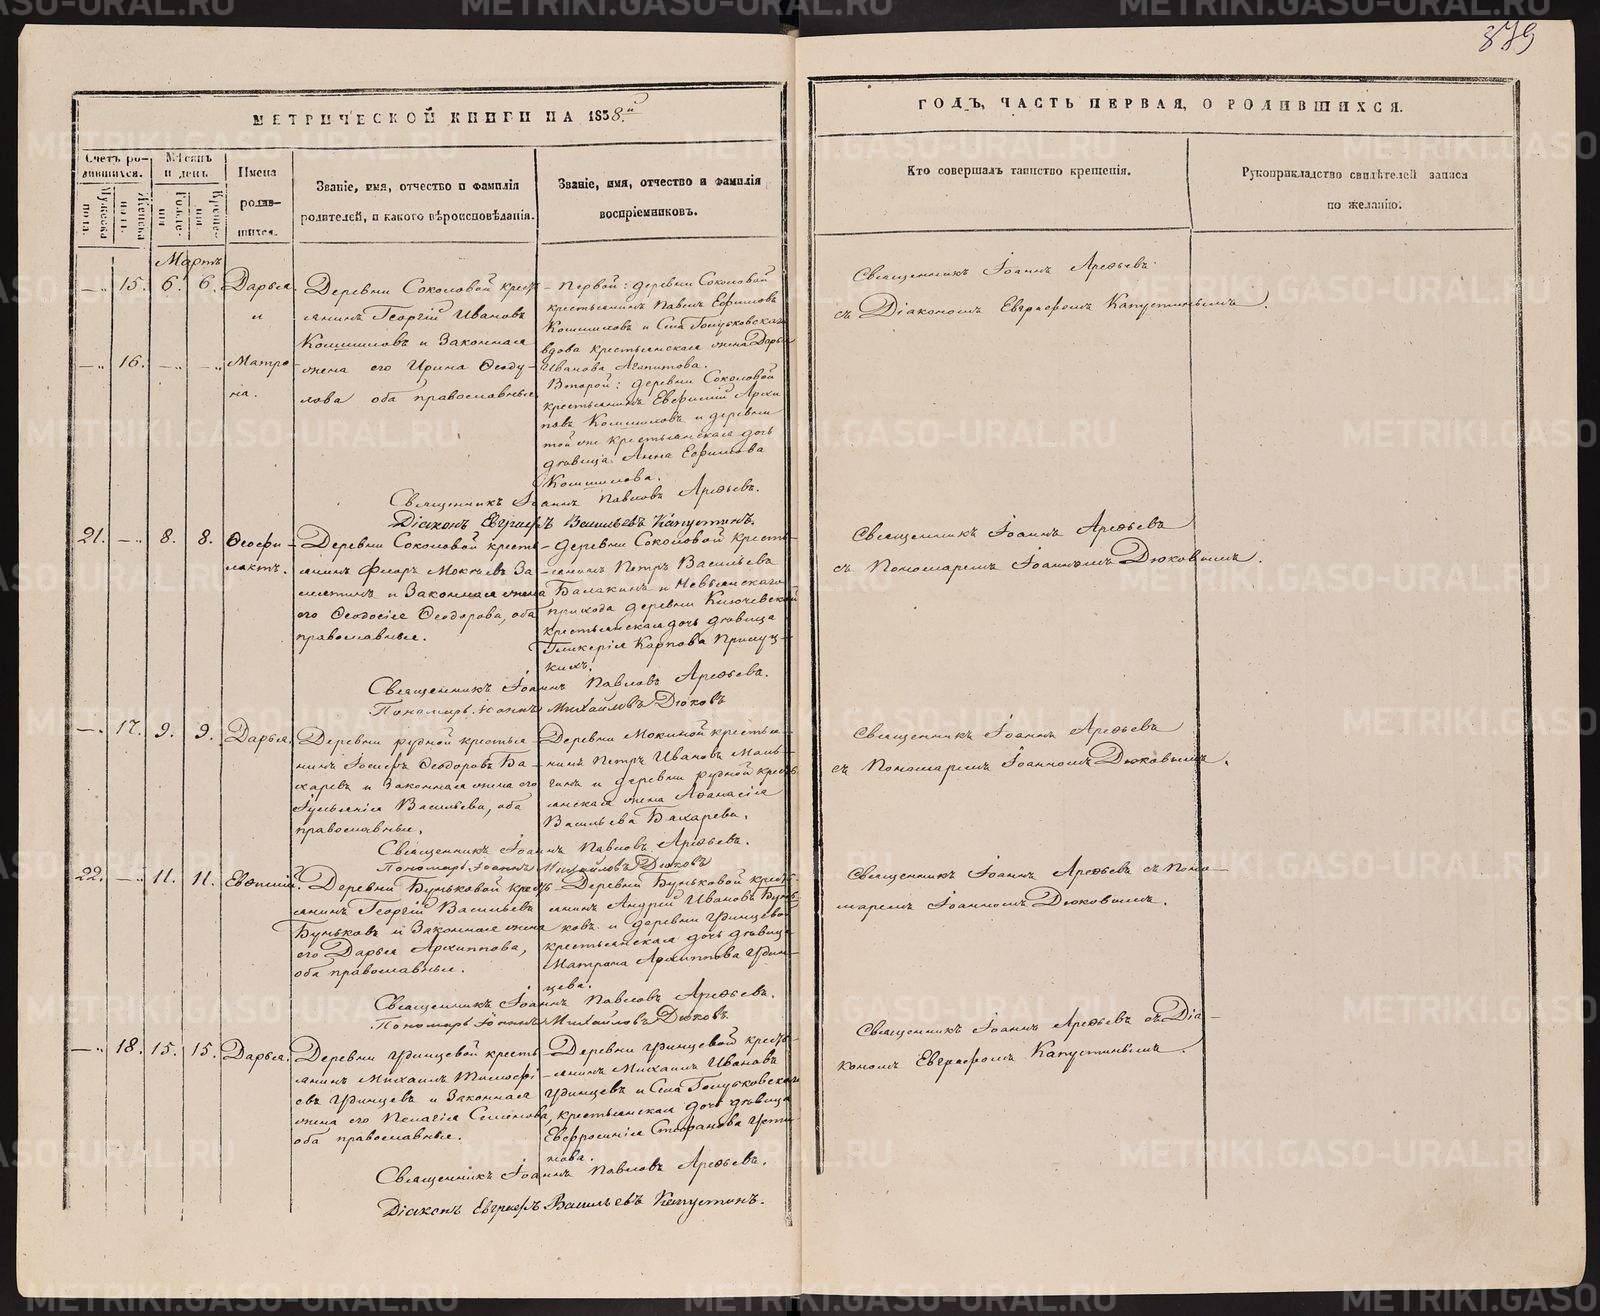 879
МЕТРИЧЕСКОЙ КНИГИ НА 1838й
ГОДЪ, ЧАСТЬ ПЕРВАЯ, О РОДИВШИХСЯ.
Счетъ ро-
дившихся.
Мужеска
пола.
Женска
пола.
Мѣсяцъ
и день.
Рожде-
нія
Креще-
нія
Имена
родив-
шихся.
Званіе, имя, отчество и фамилія
родителей, и какого вѣроисповѣданія.
Званіе, имя, отчество и фамилія
воспріемниковъ.
Кто совершалъ таинство крещенія.
Рукоприкладство свидѣтелей записи
по желанію.
Мартъ
15. 6. 6. Дарья
и
16. Матро
на.
Деревни Соколовой крест
янинъ Георгій Ивановъ
и Законная
жена его Ирина Ѳеоду-
лова оба православные
Первой: деревни Соколовой
крестьянинъ Павелъ Ефимовъ
и Села Голубковскаго
вдова крестьянская жена Дарья
Иванова Агапитова.
Второй: деревни Соколовой
крестьянинъ Евфимій Архи
повъ и деревни
той же крестьянская дочь
дѣвица Анна Ефимова
Священникъ Іоаннъ Павловъ Арефьевъ.
Діаконъ Евграфъ Васильевъ Капустинъ.
Священникъ Іоаннъ Арефьевъ
съ Діакономъ Евграфомъ Капустинымъ.
21. 8. 8. Ѳеофи-
лактъ.
Деревни Соколовой кресть-
янинъ Флоръ Мокѣевъ За
и Законная жена
его Ѳеодосія Ѳеодорова, оба
православные.
Деревни Соколовой кресть-
янинъ Петръ Васильевъ
Балакинъ и Невьянскаго
прихода деревни Ключевской
крестьянская дочь дѣвица
Гликерія Карпова
Священникъ Іоаннъ Павловъ Арефьевъ.
Пономарь Іоаннъ Михайловъ Дюковъ
Священникъ Іоаннъ Арефьевъ
съ Пономаремъ Іоанномъ Дюковымъ.
17. 9. 9. Дарья.
Деревни рудной крестья
нинъ Іосифъ Ѳеодоровъ Ба-
харевъ и Законная жена его
Іуліанія Васильева, оба
православные.
Деревни Мокиной крестья-
нинъ Петръ Ивановъ Моль-
гинъ и деревни рудной крест
янская жена Аѳанасія
Васильева Бахарева.
Священникъ Іоаннъ Павловъ Арефьевъ.
Пономарь Іоаннъ Михайловъ Дюковъ
Священникъ Іоаннъ Арефьевъ
съ Пономаремъ Іоанномъ Дюковымъ.
22. 11. 11. Евѳимій.
Деревни Буньковой крест
янинъ Георгій Васильевъ
Буньковъ и Законная жена
его Дарья Архиппова,
оба православные.
Деревни Буньковой крест
янинъ Андрей Ивановъ Бунь-
ковъ и деревни Гринцевой
крестьянская дочь дѣвица
Матрона Архиппова Грин-
цева.
Священникъ Іоаннъ Павловъ Арефьевъ.
Пономарь Іоаннъ Михайловъ Дюковъ
Священникъ Іоаннъ Арефьевъ съ Поно-
маремъ Іоанномъ Дюковымъ.
18. 15. 15. Дарья.
Деревни Гринцевой кресть
янинъ Михаилъ Тимофѣ-
евъ Гринцевъ и Законная
жена его Пелагія Семенова,
оба православные.
Деревни Гринцевой крест
янинъ Михаилъ Ивановъ
Гринцевъ и Села Голубковскаго
крестьянская дочь дѣвица
Евфросинія Стефанова Усти
нова.
Священникъ Іоаннъ Павловъ Арефьевъ.
Діаконъ Евграфъ Васильевъ Капустинъ.
Священникъ Іоаннъ Арефьевъ съ Діа-
кономъ Евграфомъ Капустинымъ.
METRIKI.GASO-URAL.RU